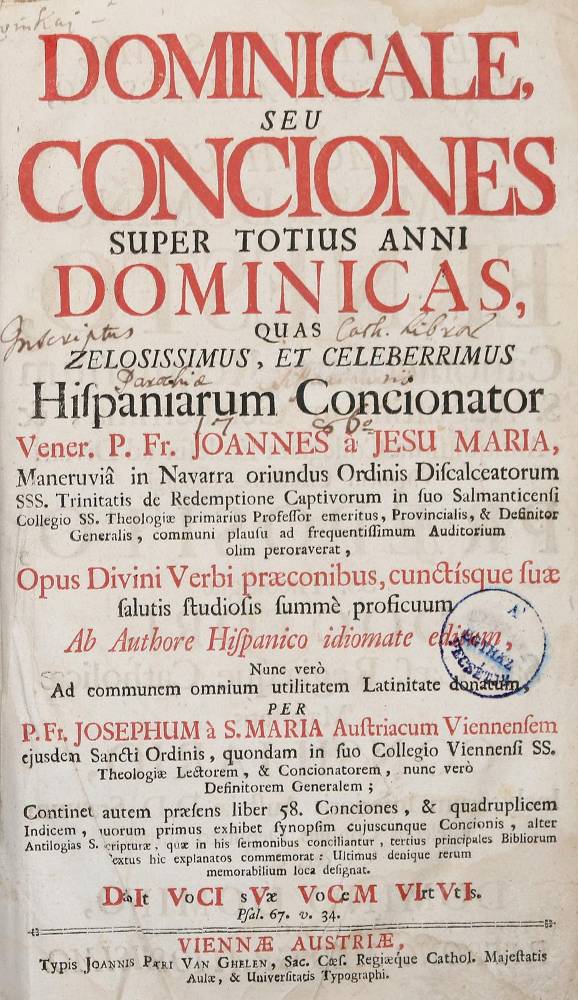 DOMINICALE,
SEU
CONCIONES
SUPER TOTIUS ANNI
DOMINICAS,
QUAS
Inscriptus Cath. Libror
ZELOSISSIMUS, ET CELEBERRIMUS
Parochiæ
Hiſpaniarum Concionator
17
Vener. P. Fr. JOANNES à JESU MARIA,
Maneruviâ in Navarra oriundus Ordinis Diſcalceatorum
SSS. Trinitatis de Redemptione Captivorum in ſuo Salmanticenſi
Collegio SS. Theologiæ primarius Profeſſor emeritus, Provincialis, & Definitor
Generalis, communi plauſu ad frequentiſſimum Auditorium
olim peroraverat,
Opus Divini Verbi præconibus, cunctíſque ſuæ
ſalutis ſtudioſis ſummè proficuum
Ab Authore Hiſpanico idiomate editum,
Nunc verò
Ad communem omnium utilitatem Latinitate donatum,
PER
P. Fr. JOSEPHUM à S. MARIA Auſtriacum Viennenſem
ejusdem Sancti Ordinis, quondam in ſuo Collegio Viennenſi SS.
Theologiæ Lectorem, & Concionatorem, nunc verò
Definitorem Generalem;
Continet autem præſens liber 58. Conciones, & quadruplicem
Indicem, quorum primus exhibet ſynopſim cujuscunque Concionis, alter
Antilogias S. Scripturæ, quæ in his ſermonibus conciliantur, tertius principales Bibliorum
Textus hic explanatos commemorat: Ultimus denique rerum
memorabilium loca deſignat.
DabIt VoCI sVæ VoCeM VIrtVtIs.
Pſal. 67. v. 34.
VIENNÆ AUSTRIÆ,
Typis JOANNIS PETRI VAN GHELEN, Sac. Cæſ. Regiæque Cathol. Majeſtatis
Aulæ, & Univerſitatis Typographi.